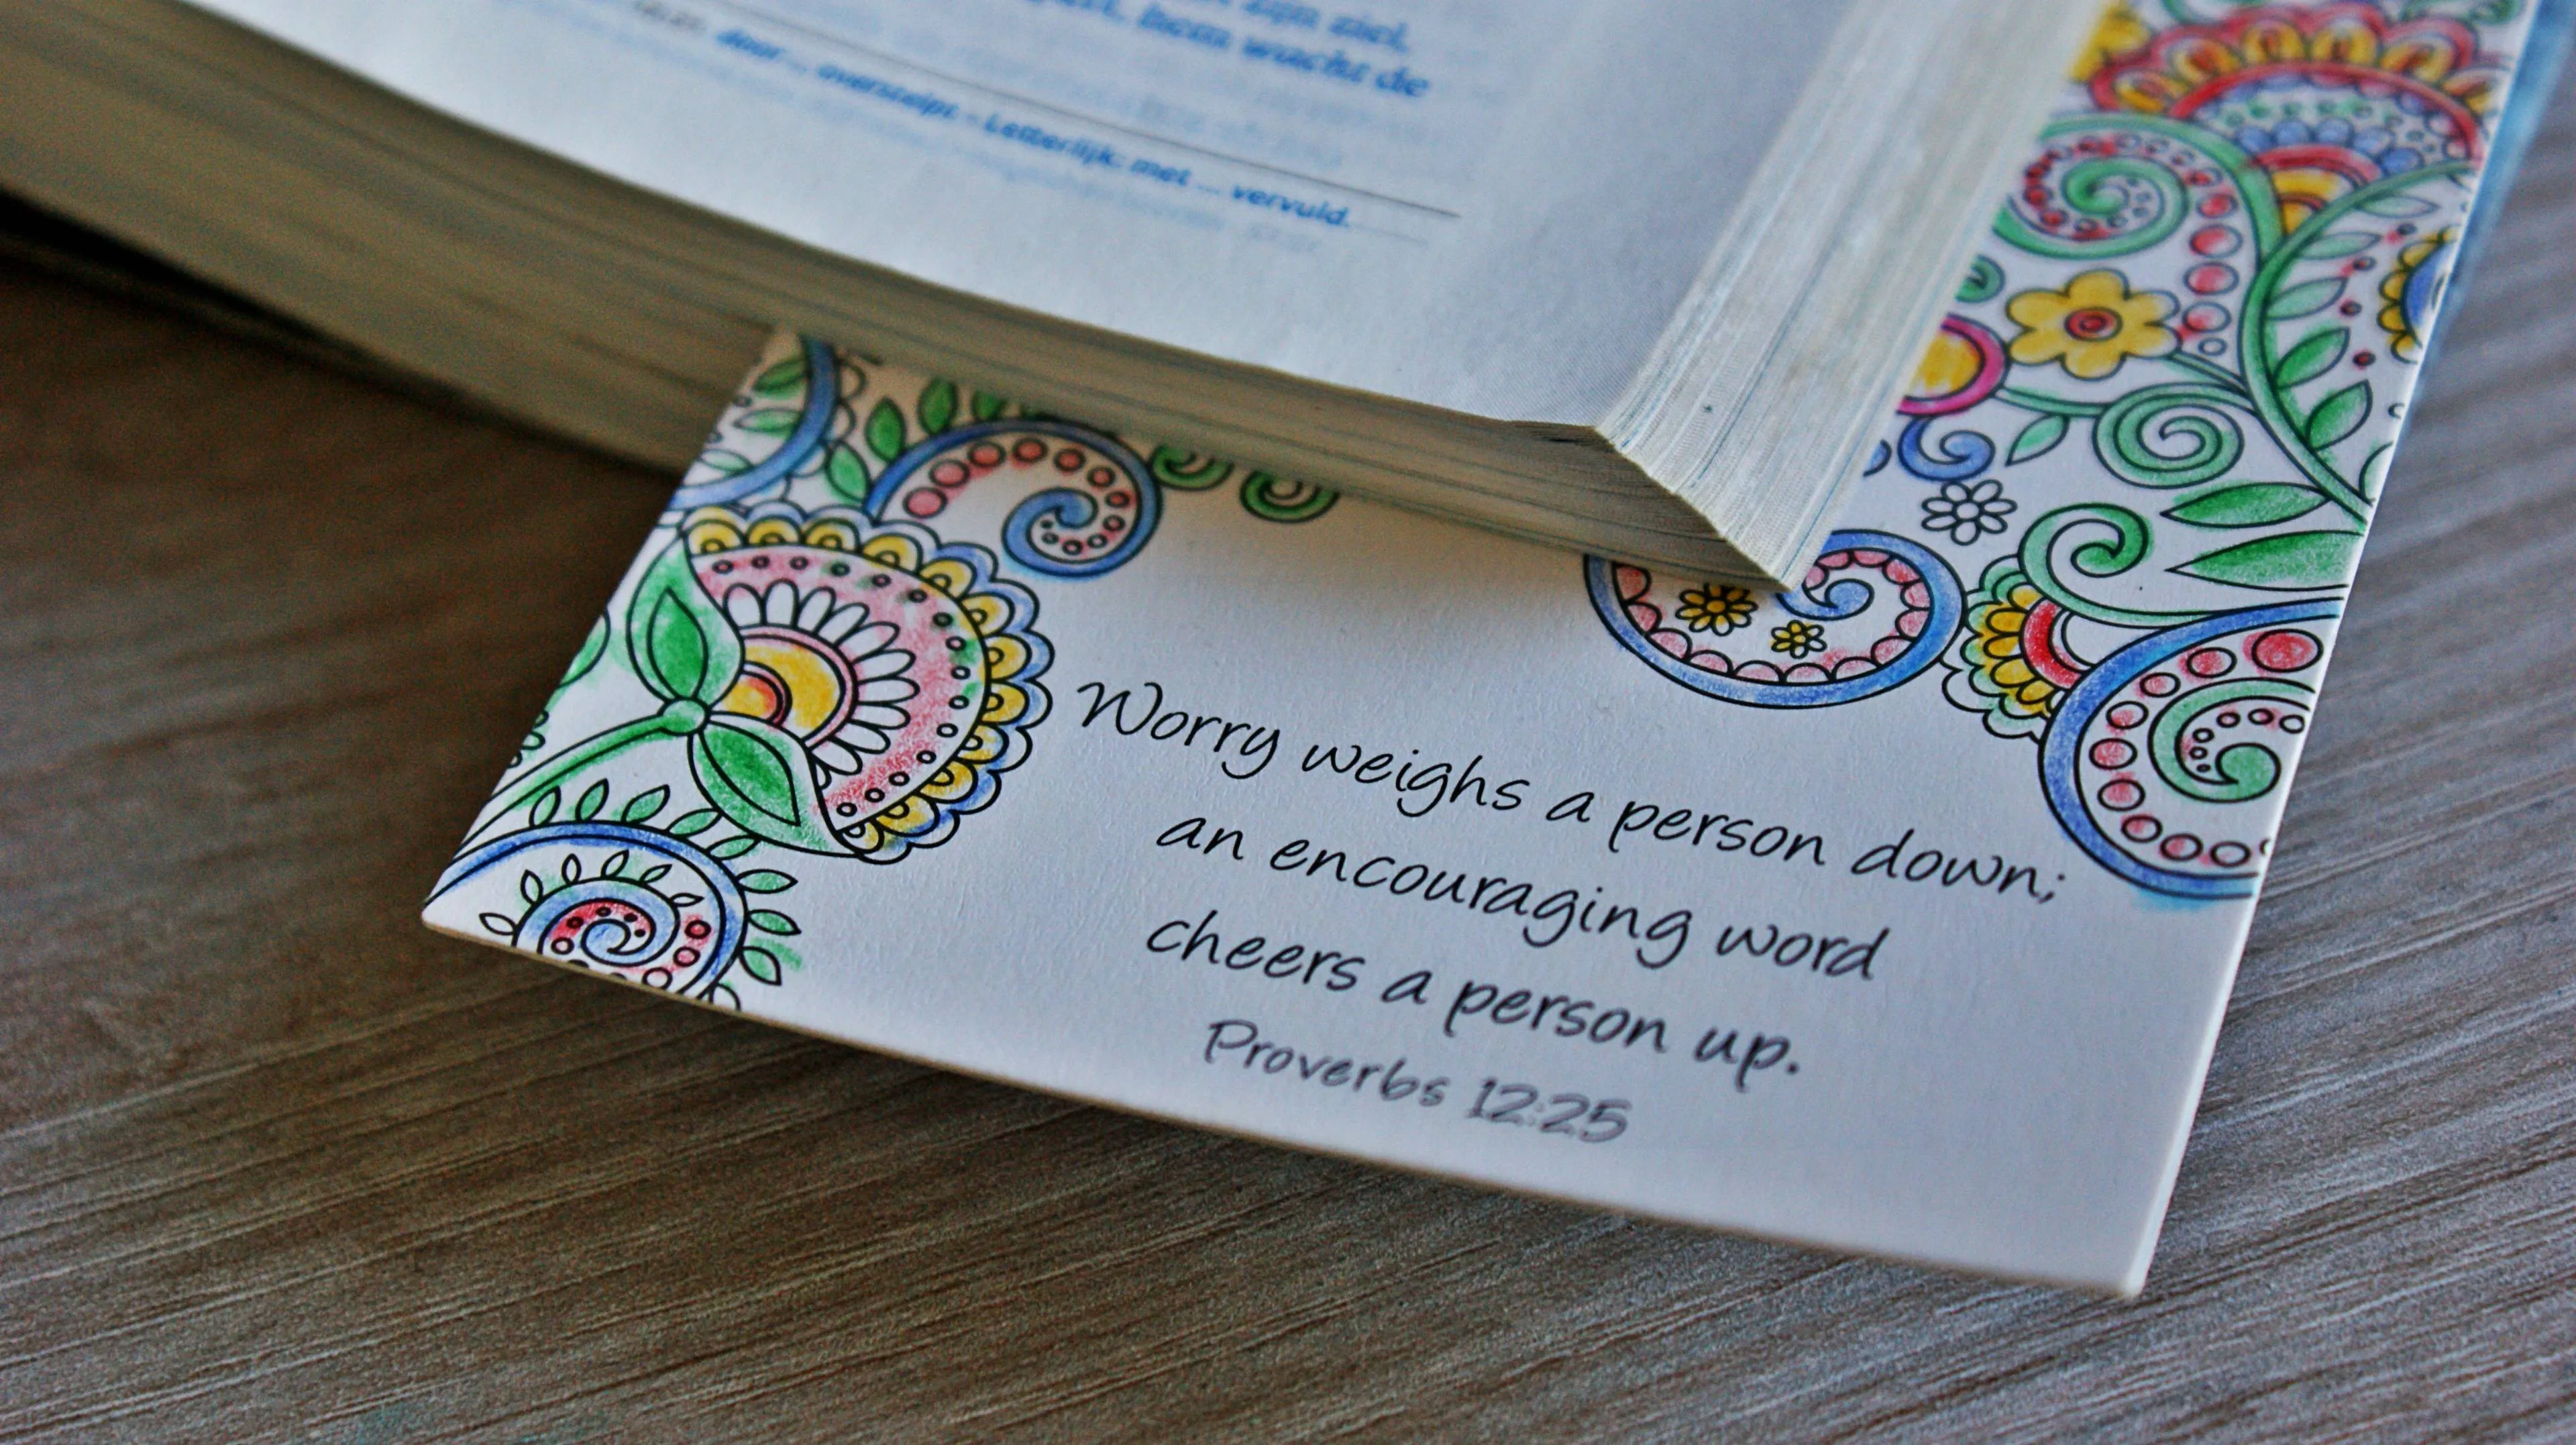 zijn ziel,
hem wacht de
door ... overstelpt - Letterlijk: met ... vervuld.
Worry weighs a person down;
an encouraging word
cheers a person up.
Proverbs 12:25